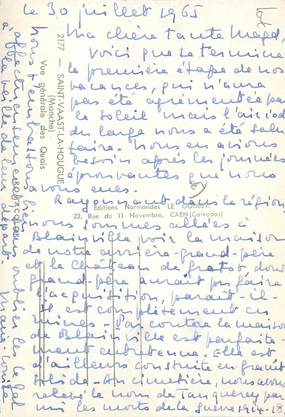 le 30 juillet 1965
Ma chère tante Magd,
voici que se termine
la première étape de nos
vacances, qui n'aura
pas été agrémentée par
le soleil mais l'air iodé
du large nous a été salu-
taire. Nous en avions
besoin après les journées
éprouvantes que nous
avons eues.
Rayonnant dans la région
nous sommes allées à
Blainville voir la maison
de notre arrière-grand-père
et le Château de Gratot, dont
grand-père aurait pu faire
l'acquisition, paraît-il-
est complètement en
ruines. Par contre la maison
de Blainville est parfaite-
ment entretenue. Elle est
d'ailleurs construite en granit
solide. Au cimetière, nous avons
relevé le nom de Tanquerey par-
mi les morts de la guerre 1914-18
2177 - SAINT-VAAST-LA-HOUGUE
(Manche)
Vue générale des Quais
Editions Normandes LE GOUBEY
22, Rue du 11 Novembre, CAEN (Calvados)
Nous t'embrassons
affectueusement sans oublier les
Marie-Louise